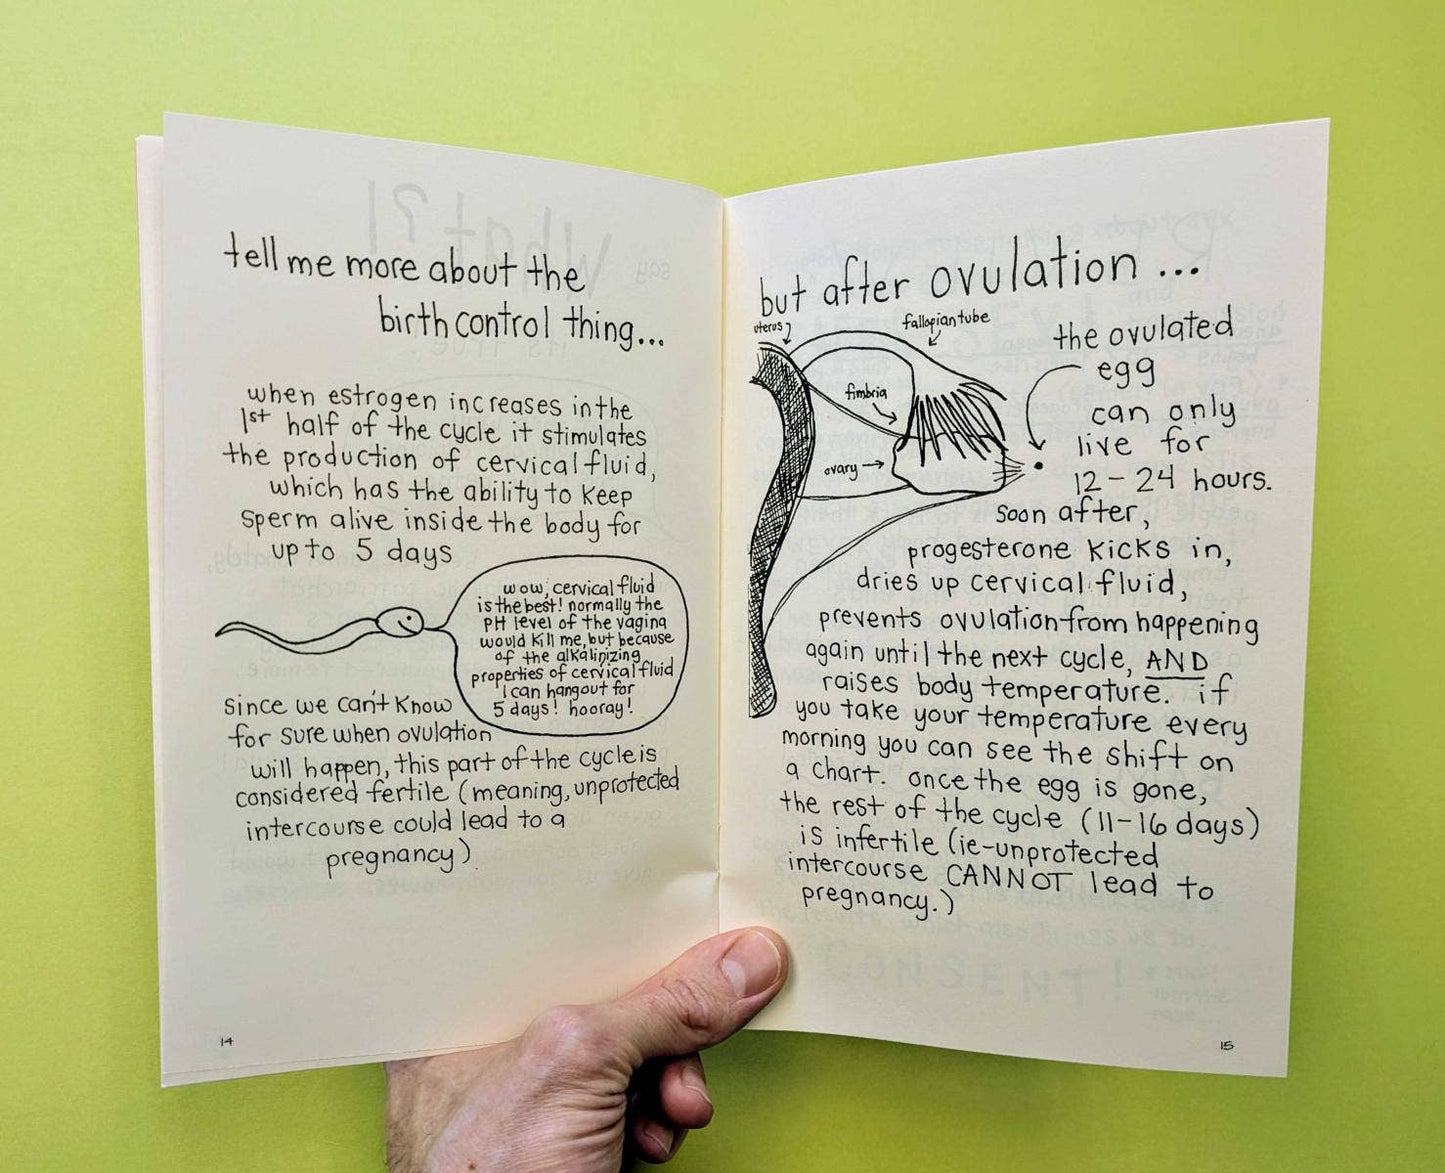 tell me more about the
birth control thing...
when estrogen increases in the
1st half of the cycle it stimulates
the production of cervical fluid,
which has the ability to keep
sperm alive inside the body for
up to 5 days
wow, cervical fluid
is the best! normally the
PH level of the vagina
would kill me, but because
of the alkalinizing
properties of cervical fluid
I can hangout for
5 days! hooray!
since we can't know
for sure when ovulation
will happen, this part of the cycle is
considered fertile (meaning, unprotected
intercourse could lead to a
pregnancy)
14
but after ovulation...
uterus
fallopian tube
fimbria
ovary
the ovulated
egg
can only
live for
12-24 hours.
soon after,
progesterone kicks in,
dries up cervical fluid,
prevents ovulation from happening
again until the next cycle, AND
raises body temperature. if
you take your temperature every
morning you can see the shift on
a chart. once the egg is gone,
the rest of the cycle (11-16 days)
is infertile (ie-unprotected
intercourse CANNOT lead to
pregnancy.)
CONSENT!
15